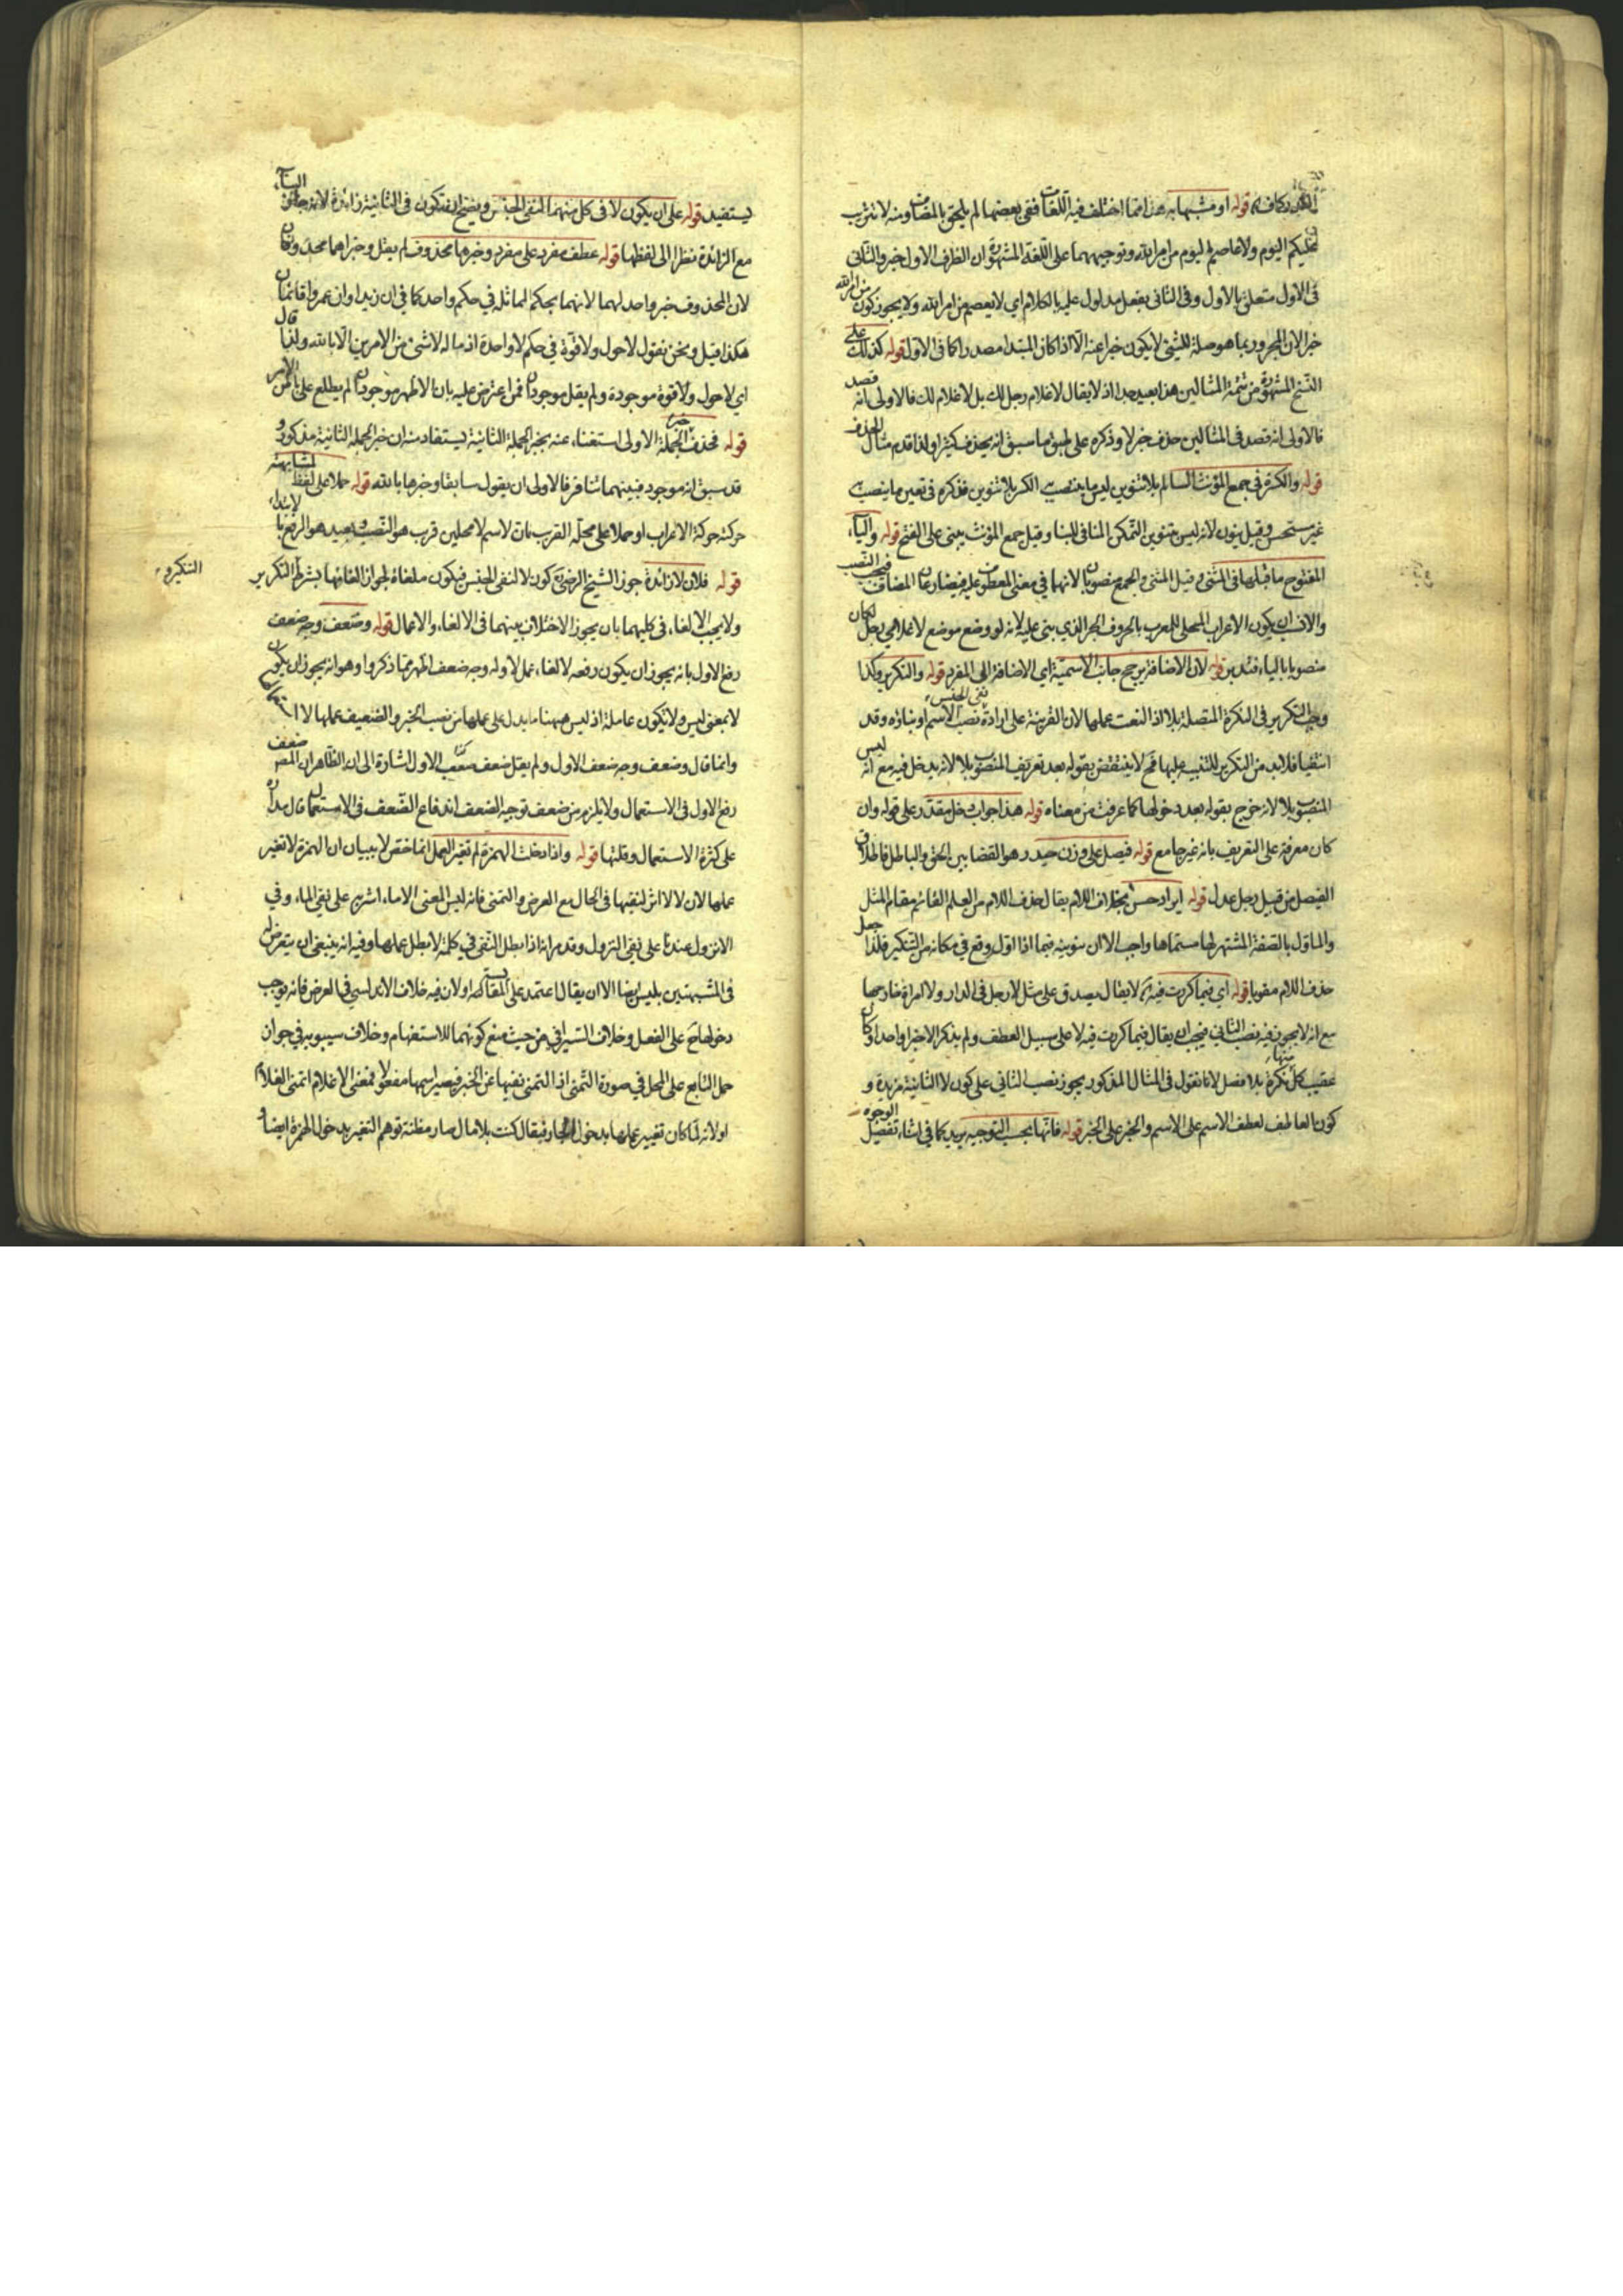 قوله او مشبها به هذا مما اختلف فيه اللغات ففي بعضها لم يلحق بالمضاف ومنه لا تثريب
عليكم اليوم ولا عاصم اليوم من امر الله وتوجيههما على اللغة المشهورة ان الظرف الاول خبر والثاني
في الاول متعلق بالاول وفي الثاني بفعل مدلول عليه بالكلام اي لا يعصم من امر الله ولا يجوز كون من امر الله
خبرا لان المجرور بما هو صلة للشيء لا يكون خبرا عنه الا اذا كان المبتدا مصدرا كما في الاول قوله كذلك على
النسخ المشهورة من تتمة المثالين هذا بعيد جدا اذ لا يقال لا غلام رجل لك بل لا غلام لك فالاولى انه قصد
فالاولى انه قصد في المثالين حذف خبر لا وذكره على طبق ما سبق انه يحذف كثيرا ولذا قدم مثال الحذف
قوله والكسرة في جمع المؤنث السالم بلا تنوين ليس ما ينصب الكسر بلا تنوين فذكره في تعيين ما ينصب
غير مستحسن وقيل بنون لانه ليس تنوين التمكن المنافي للبنا وقيل جمع المؤنث يبنى على الفتح قوله والياء
المفتوح ما قبلها في المثنى وقيل المثنى والجمع منصوبان لانهما في معنى المعطوف عليه فيضارعان المضاف فيجب النصب
والانسب ان يكون الاعراب المحلي للمعرب بالحروف الحر الذي بني عليه لانه لو وضع موضع لا غلامي رجل لكان
منصوبا بالياء فتدبر قوله لان الاضافة ترجح جانب الاسمية اي الاضافة الى المفرد قوله والتكرير وكذا
وجب التكرير في النكرة المتصلة بلا اذا لغت عملها لان القرينة على ارادة نفي الجنس نصب الاسم او بناؤه وقد
انتفيا فلا بد من التكرير للتنبيه عليها فح لا ينتقض بقوله بعد تعريف المنصوب بلا لانه يدخل فيه مع انه ليس
المنصوب بلا لانه خرج بقوله بعد دخولها كما عرفت من معناه قوله هذا جواب دخل مقدر على قوله وان
كان معرفة على التعريف بانه غير جامع قوله فيصل على وزن حيدر هو القضا بين الحق والباطل فاطلاق
الفيصل من قبيل رجل عدل قوله ايراد حسن بحذف اللام يقال حذف اللام من العلم القائم مقام المثل
والماول بالصفة المشتهر لها مسماها واجب الا ان سيبويه فيما اذا اول وقع في مكانه من التنكير فلذا جعل
حذف اللام مقويا قوله اي فيما كررت فيه لا يقال يصدق على مثل لا رجل في الدار ولا امراة خارجها
مع انه لا يجوز فيه نصب الثاني فيجب ان يقال فيما كررت فيه لا على سبيل العطف ولم يذكر الا خبرا واحدا وكان
عقيب كل منهما نكرة بلا فصل لانا نقول في المثال المذكور يجوز نصب الثاني على كون لا الثانية مزيدة و
كون العاطف لعطف الاسم على الاسم والخبر على الخبر قوله فانها بحسب التوجيه يريد كما في اثناء تفصيل الوجوه
يستفيد قوله على ان يكون لا في كل منهما لنفي الجنس ويصح ان تكون في الثانية زائدة لانه جائز
مع الزائدة نظرا الى لفظها قوله عطف مفرد على مفرد وخبرها محذوف لم يقل وخبراهما محذوفان
لان المحذوف خبر واحد لهما لانهما بحكم المماثلة في حكم واحد كما في ان زيدا وان عمروا قائمان
هكذا قيل ونحن نقول لا حول ولا قوة في حكم لا واحدة اذ ماله لا شيء من الامرين الا بالله ولذا قال
اي لا حول ولا قوة موجودة ولم يقل موجودان فمن اعترض عليه بان الاظهر موجودان لم يطلع على الامر
قوله فحذف خبر الجملة الاولى استغناء عنه بخبر الجملة الثانية يستفاد منه ان خبر الجملة الثانية مذكور و
قد سبق انه موجود فبينهما تنافر فالاولى ان يقول سابقا وخبرها بالله قوله حملا على لفظ لمشابهة
حركته حركة الاعراب او حملا على محله القريب فان لاسم لا محلين قريب هو النصب وبعيد هو الرفع بالابتداء
قوله فلان لا زائدة جوز الشيخ الرضي كون لا لنفي الجنس فيكون ملغاة لجواز الغائها بشرط التكرير
التكرير
ولا يجب الالغاء في كليهما بان يجوز الاختلاف بينهما في الالغاء والاعمال قوله وضعف وجه ضعف
رفع الاول بانه يجوز ان يكون رفعه لالغاء عمل لا وله وجه ضعف اظهر مما ذكروا وهو انه يجوز ان يكون
لا بمعنى ليس ولا تكون عاملة اذ ليس ههنا ما يدل على عملها من نصب الخبر والضعيف عملها لا
وانما قال وضعف وجه ضعف الاول ولم يقل ضعف الاول اشارة الى ان الظاهر ان المصه ضعف
رفع الاول في الاستعمال ولا يلزم من ضعف توجيه الضعف اندفاع الضعف في الاستعمال فان مداره
على كثرة الاستعمال وقلتها قوله واذا دخلت الهمزة لم تغير العمل انما خص لا ببيان ان الهمزة لا تغير
عملها لان لا لا اثر لنفيها في الحال مع العرض والتمني فانه ليس المعنى الا ماء اشربه على نفي الماء وفي
الا نزول عندنا على نفي النزول وقد مر انه اذا بطل النفي في كلمة لا بطل عملها وفيه انه ينبغي ان يتعرض له
في المشبهتين بليس ايضا الا ان يقال اعتمد على المقايسة او لان فيه خلاف الاندلسي في العرض فانه يوجب
دخولها ح على الفعل وخلاف السيرافي من حيث منع كونهما للاستفهام وخلاف سيبويه في جواز
حمل التابع على المحل في صورة التمني اذ التمني نفيها عن الخبر فيصير اسمها مفعولا فمعنى الا غلام اتمنى الغلام
او لانه لما كان تغيير عملها بدخول الجار فيقال كنت بلا مال صار مظنة توهم التغير بدخول الهمزة ايضا و